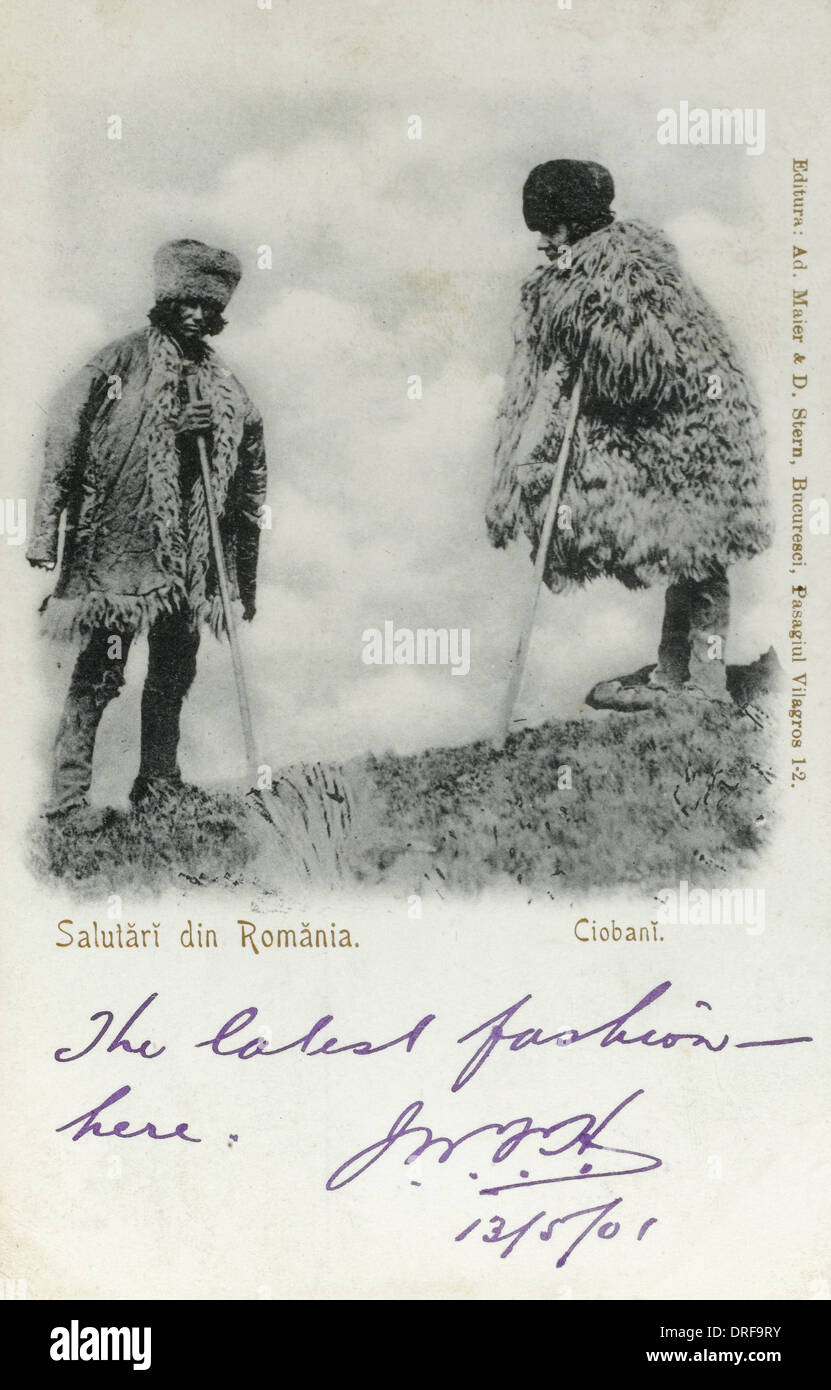 Editura: Ad. Maier & D. Stern, Bucuresci, Pasagiul Vilagros 1-2.
Salutărĭ din Romănia.
Ciobanĭ.
The latest fashion—
here.
12/5/01
alamy
Image ID: DRF9RY
www.alamy.com